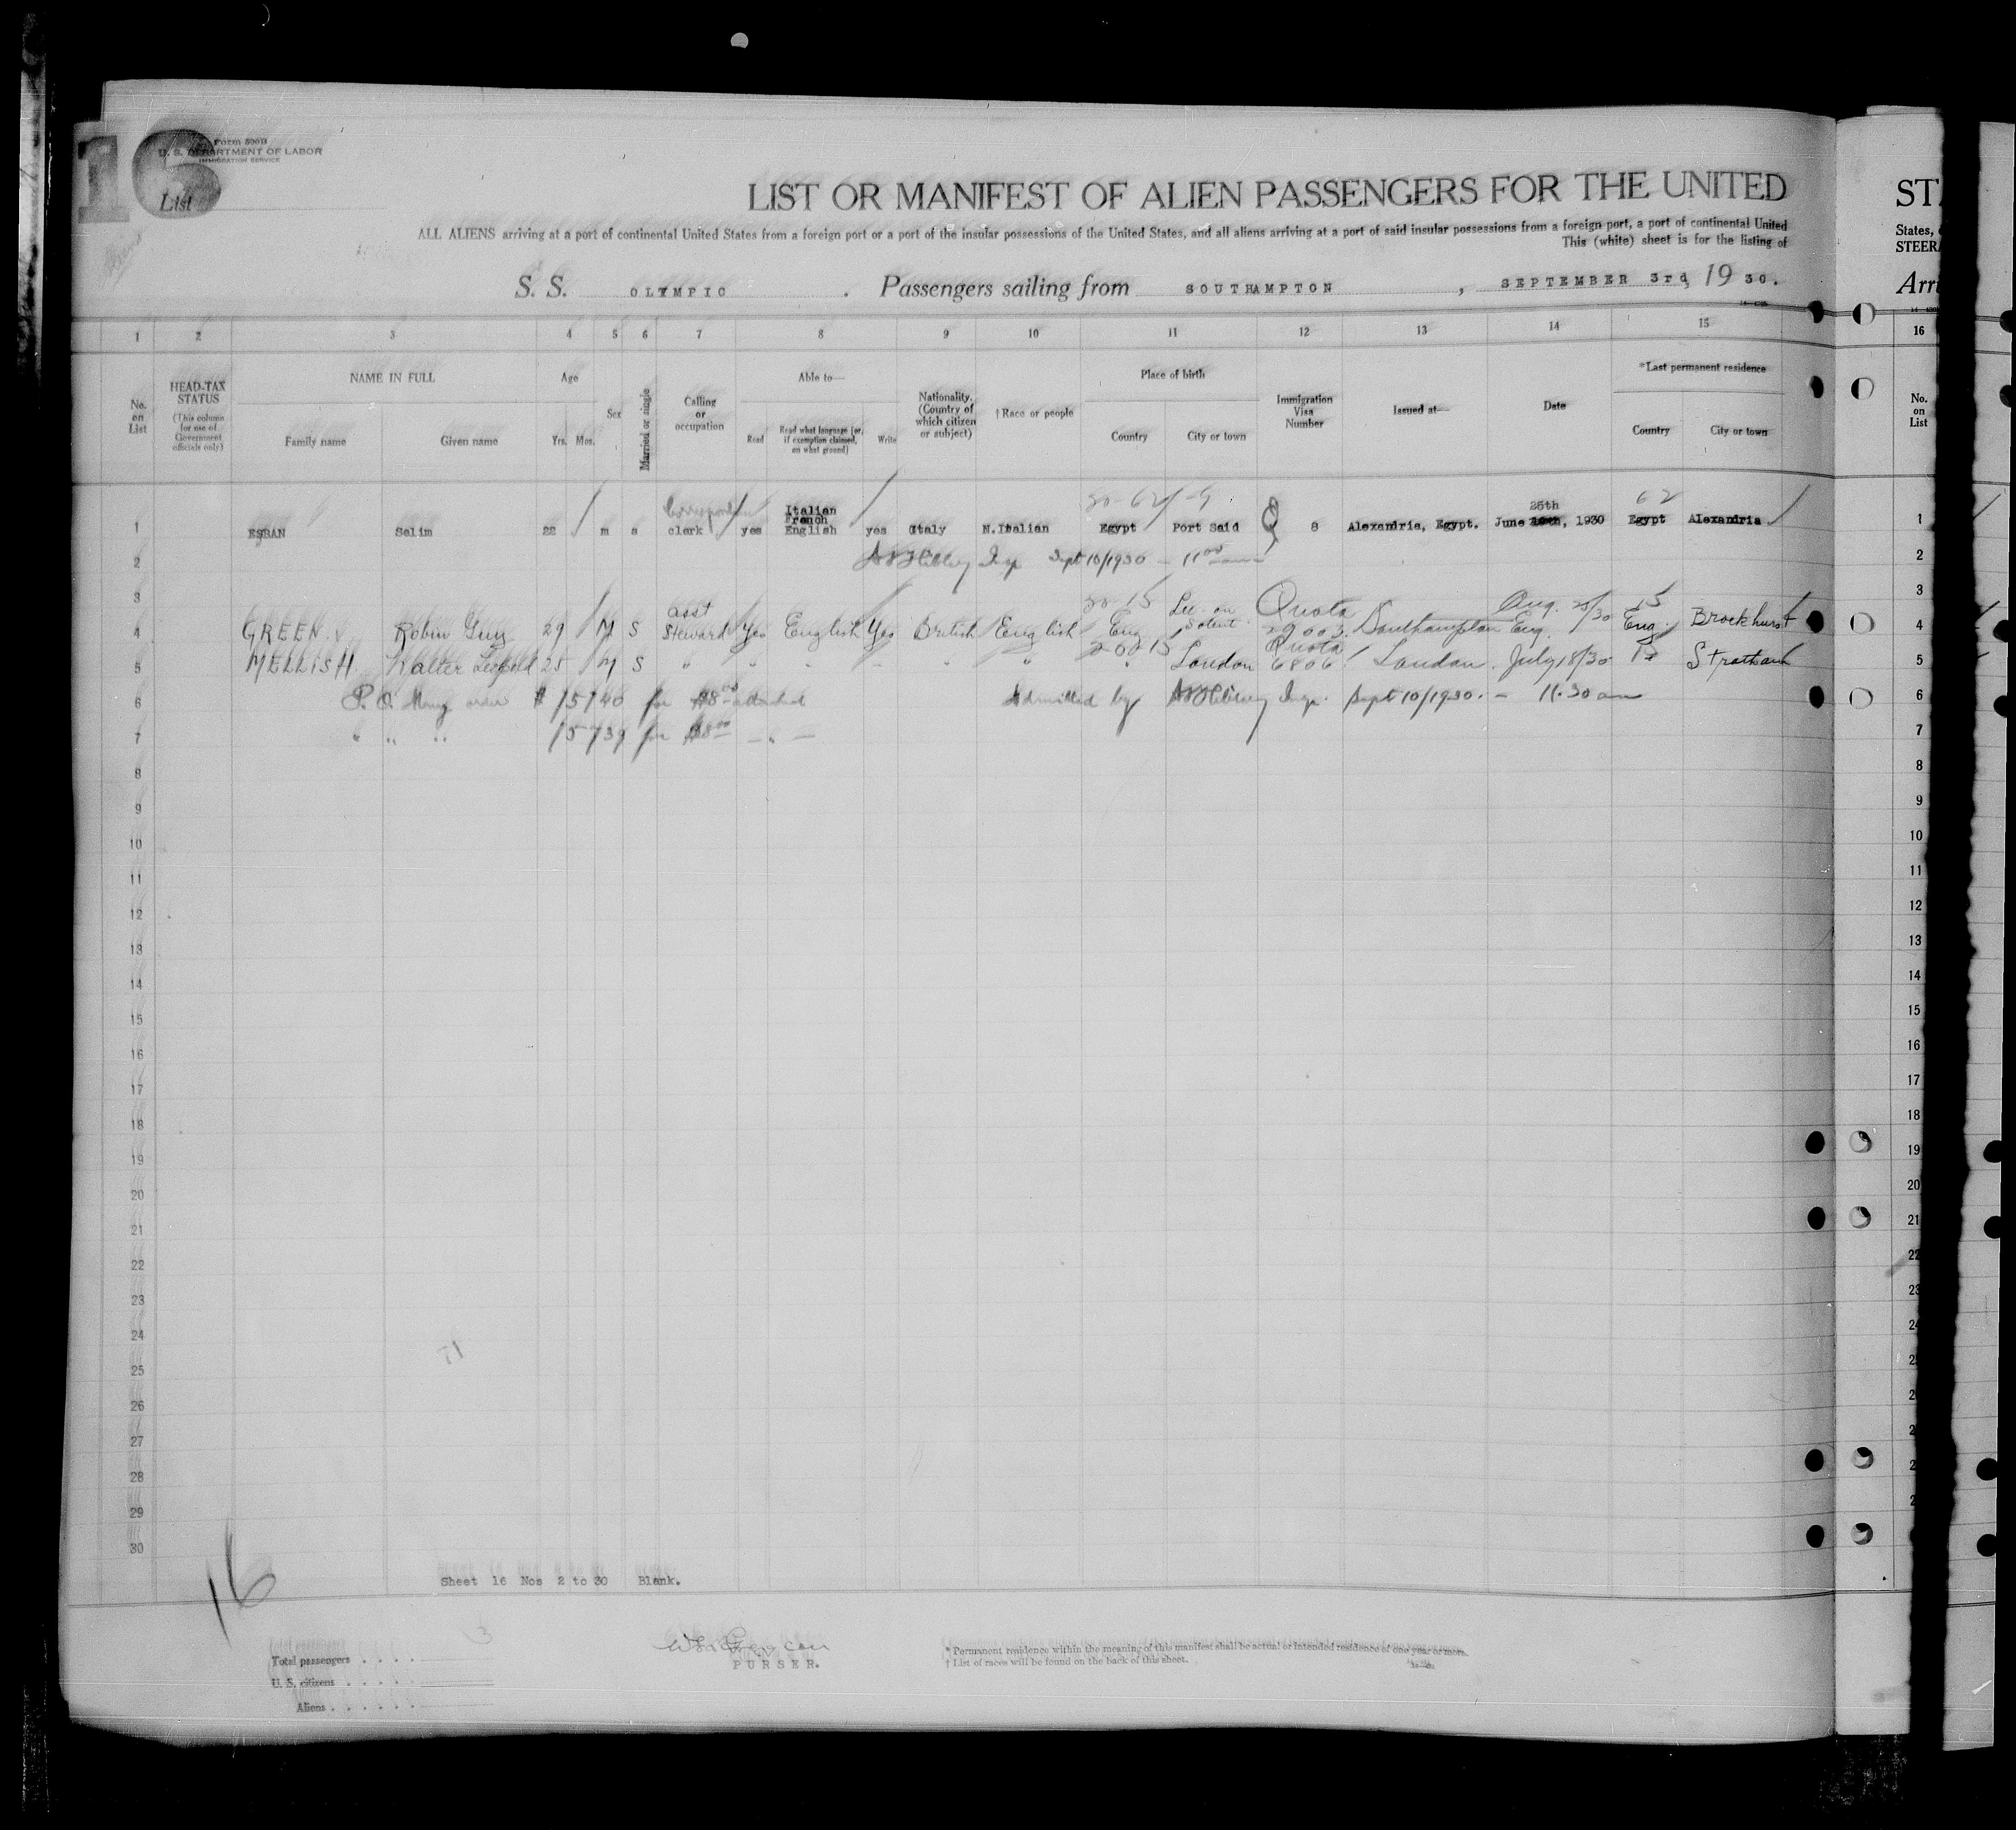 16
Form 500B
U. S. DEPARTMENT OF LABOR
IMMIGRATION SERVICE
List
LIST OR MANIFEST OF ALIEN PASSENGERS FOR THE UNITED
ALL ALIENS arriving at a port of continental United States from a foreign port or a port of the insular possessions of the United States, and all aliens arriving at a port of said insular possessions from a foreign port, a port of continental United
This (white) sheet is for the listing of
S. S. OLYMPIC . Passengers sailing from SOUTHAMPTON , SEPTEMBER 3rd, 1930.
1 2 3 4 5 6 7 8 9 10 11 12 13 14 15
No. on List
HEAD-TAX STATUS (This column for use of Government officials only)
NAME IN FULL Family name Given name
Age Yrs. Mos.
Sex
Married or single
Calling or occupation
Able to— Read Read what language (or, if exemption claimed, on what ground) Write
Nationality. (Country of which citizen or subject)
†Race or people
Place of birth Country City or town
Immigration Visa Number
Issued at—
Date
*Last permanent residence Country City or town
30-62/-9 62
1 ESBAN Selim 22 m s clerk yes Italian French English yes Italy N.Italian Egypt Port Said Q 8 Alexandria, Egypt. June 25th, 1930 Egypt Alexandria
2 Insp Sept 10/1930 - 11 00 am
3
4 GREEN Robin Guy 29 M S asst Steward Yes English Yes British English Eng. Lee-on Solent Quota 29003 Southampton Eng. Aug. 25/30 15 Eng. Brockhurst
5 MELLISH Walter Leopold 25 M S " " " " " " " London Quota 6806 London July 18/30 " Streatham
6 P. O. Money order # 15740 for $8 00 attached Admitted by Insp. Sept 10/1930. - 11.30 am
7 " " " 15739 for $8 00 — " —
8
9
10
11
12
13
14
15
16
17
18
19
20
21
22
23
24
25
26
27
28
29
30
16
Sheet 16 Nos 2 to 30 Blank.
3
Total passengers . . . .
U. S. citizens . . . . .
Aliens . . . . . .
PURSER.
* Permanent residence within the meaning of this manifest shall be actual or intended residence of one year or more.
† List of races will be found on the back of this sheet.
STA
States,
STEER
Arri
16
No. on List
1
2
3
4
5
6
7
8
9
10
11
12
13
14
15
16
17
18
19
20
21
22
23
24